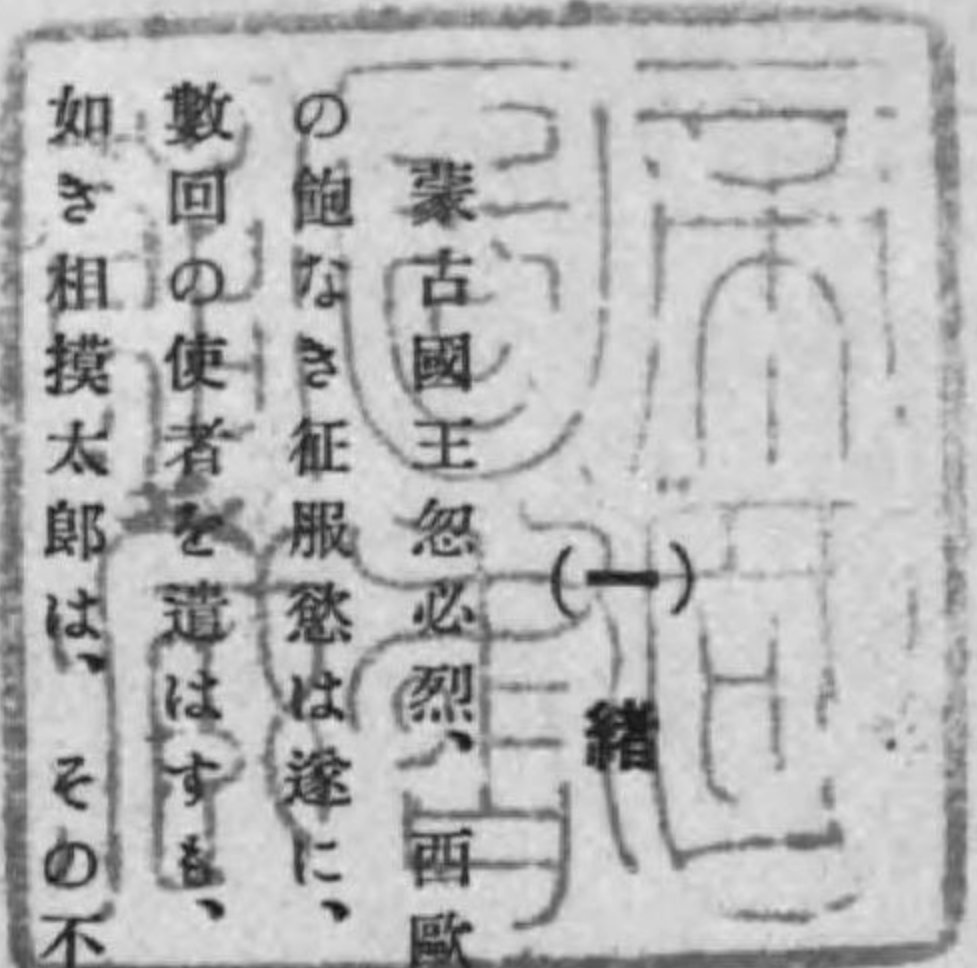 (一) 緒
蒙古國王忽必烈、西歐
の飽なき征服慾は遂に、
數回の使者を遣はすも、
如き相摸太郎は、その不